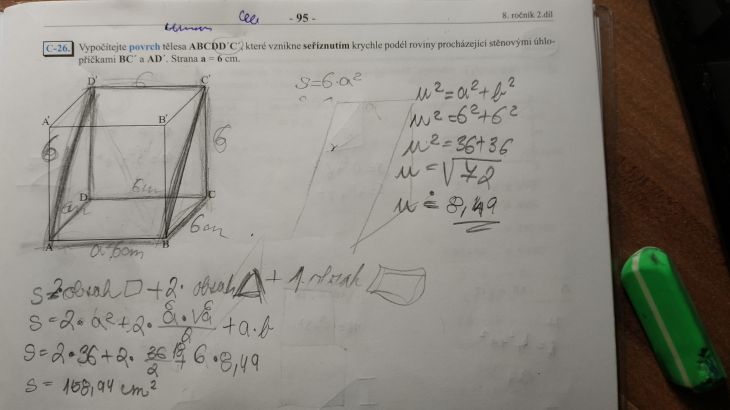 - 95 -
8. ročník 2.díl
C-26. Vypočítejte povrch tělesa ABCDD´C´, které vznikne seříznutím krychle podél roviny procházející stěnovými úhlo-
příčkami BC´ a AD´. Strana a = 6 cm.
D´
6
C´
A´
B´
6
6
D
6cm
C
6cm
A
a=6cm
B
S=6·a²
u²=a²+b²
u²=6²+6²
u²=36+36
u=√72
u≐8,49
S=2·obsah □ + 2· obsah △ + 1·obsah
S=2·a²+2·a·va/2+a·b
S=2·36+2·36/2+6·8,49
S=158,94 cm²